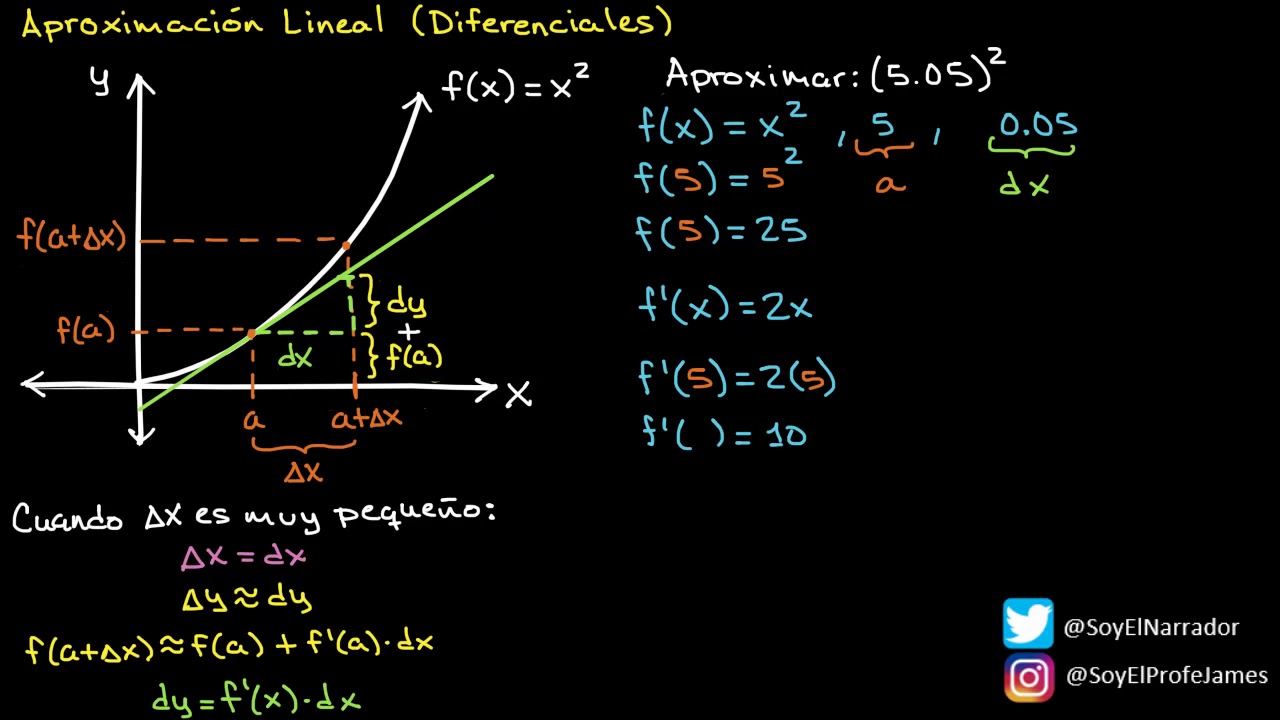 Aproximación Lineal (Diferenciales)
y
f(x) = x²
f(a+Δx)
f(a)
dx
} dy
+
} f(a)
x
a
a+Δx
Δx
Cuando Δx es muy pequeño:
Δx = dx
Δy ≈ dy
f(a+Δx) ≈ f(a) + f'(a)·dx
dy = f'(x)·dx
Aproximar: (5.05)²
f(x) = x² , 5 , 0.05
a dx
f(5) = 5²
f(5) = 25
f'(x) = 2x
f'(5) = 2(5)
f'( ) = 10
@SoyElNarrador
@SoyElProfeJames